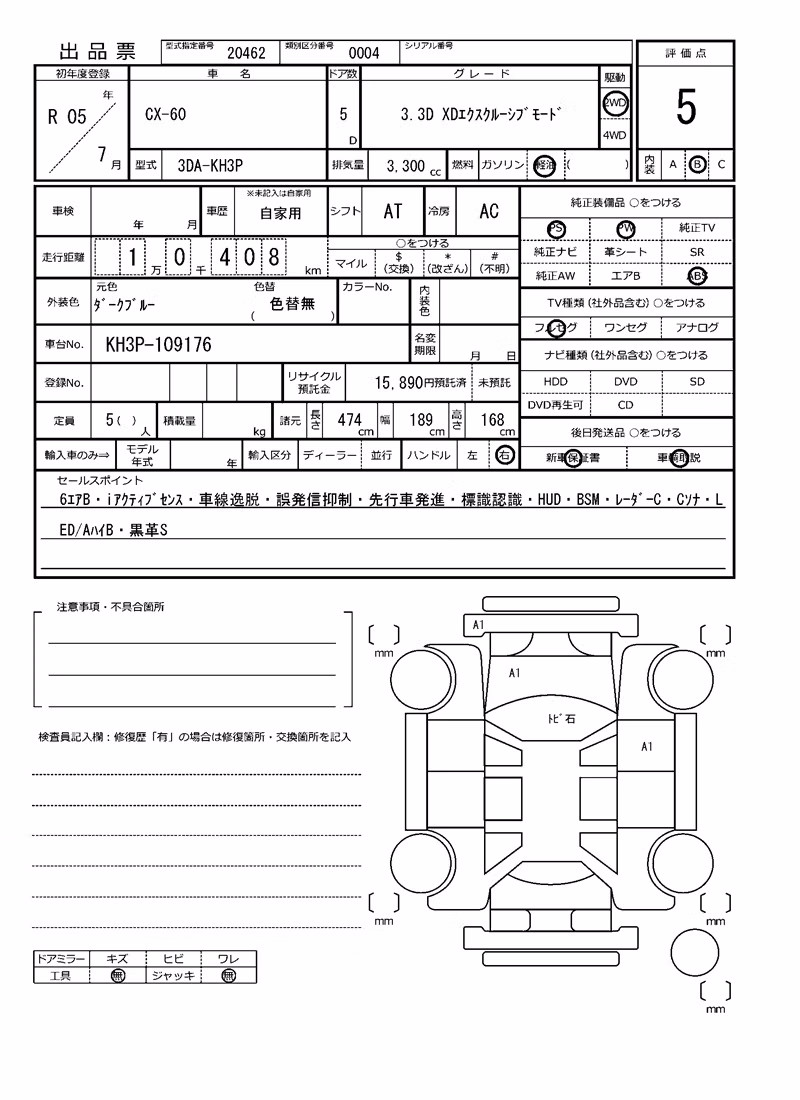 出品票 型式指定番号 20462 類別区分番号 0004 シリアル番号
評価点
初年度登録 車名 ドア数 グレード 駆動
R 05 年 7 月 CX-60 5 D 3.3D XDｴｸｽｸﾙｰｼﾌﾞﾓｰﾄﾞ 2WD 4WD 5
型式 3DA-KH3P 排気量 3,300 cc 燃料 ガソリン 軽油 ( ) 内装 A B C
車検 年 月 車歴 ※未記入は自家用 自家用 シフト AT 冷房 AC
純正装備品 ○をつける
PS PW 純正TV
純正ナビ 革シート SR
純正AW エアB ABS
走行距離 1 万 0 千 4 0 8 km ○をつける マイル $(交換) *(改ざん) #(不明)
外装色 元色 ﾀﾞｰｸﾌﾞﾙｰ 色替 色替無 ( ) カラーNo. 内装色
TV種類(社外品含む)○をつける
フルセグ ワンセグ アナログ
車台No. KH3P-109176 名変期限 月 日
ナビ種類(社外品含む)○をつける
HDD DVD SD
DVD再生可 CD
登録No. リサイクル預託金 15,890円預託済 未預託
定員 5( ) 人 積載量 kg 諸元 長さ 474 cm 幅 189 cm 高さ 168 cm
後日発送品 ○をつける
新車保証書 車輌取説
輸入車のみ⇒ モデル年式 年 輸入区分 ディーラー 並行 ハンドル 左 右
セールスポイント
6ｴｱB・iｱｸﾃｨﾌﾞｾﾝｽ・車線逸脱・誤発信抑制・先行車発進・標識認識・HUD・BSM・ﾚｰﾀﾞｰC・Cｿﾅ・L
ED/AﾊｲB・黒革S
注意事項・不具合箇所
検査員記入欄：修復歴「有」の場合は修復箇所・交換箇所を記入
ドアミラー キズ ヒビ ワレ
工具 無 ジャッキ 無
A1
mm
mm
A1
ﾄﾋﾞ石
A1
mm
mm
mm